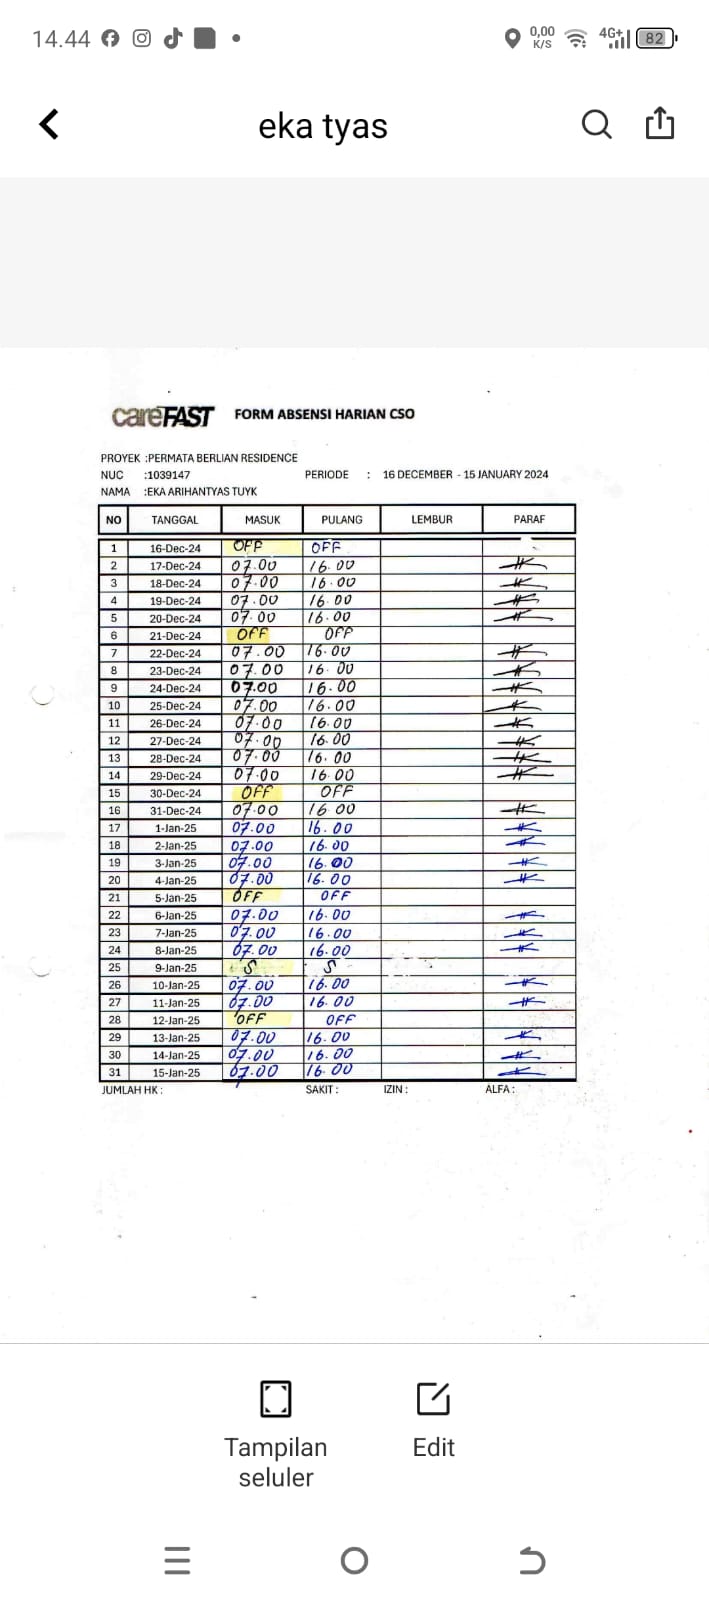 14.44 0,00 K/S 4G+ 82
eka tyas
careFAST FORM ABSENSI HARIAN CSO
PROYEK :PERMATA BERLIAN RESIDENCE
NUC :1039147 PERIODE : 16 DECEMBER - 15 JANUARY 2024
NAMA :EKA ARIHANTYAS TUYK
NO TANGGAL MASUK PULANG LEMBUR PARAF
1 16-Dec-24 OFF OFF
2 17-Dec-24 07.00 16.00
3 18-Dec-24 07.00 16.00
4 19-Dec-24 07.00 16.00
5 20-Dec-24 07.00 16.00
6 21-Dec-24 OFF OFF
7 22-Dec-24 07.00 16.00
8 23-Dec-24 07.00 16.00
9 24-Dec-24 07.00 16.00
10 25-Dec-24 07.00 16.00
11 26-Dec-24 07.00 16.00
12 27-Dec-24 07.00 16.00
13 28-Dec-24 07.00 16.00
14 29-Dec-24 07.00 16.00
15 30-Dec-24 OFF OFF
16 31-Dec-24 07.00 16.00
17 1-Jan-25 07.00 16.00
18 2-Jan-25 07.00 16.00
19 3-Jan-25 07.00 16.00
20 4-Jan-25 07.00 16.00
21 5-Jan-25 OFF OFF
22 6-Jan-25 07.00 16.00
23 7-Jan-25 07.00 16.00
24 8-Jan-25 07.00 16.00
25 9-Jan-25 S S
26 10-Jan-25 07.00 16.00
27 11-Jan-25 07.00 16.00
28 12-Jan-25 OFF OFF
29 13-Jan-25 07.00 16.00
30 14-Jan-25 07.00 16.00
31 15-Jan-25 07.00 16.00
JUMLAH HK : SAKIT : IZIN : ALFA :
Tampilan seluler
Edit